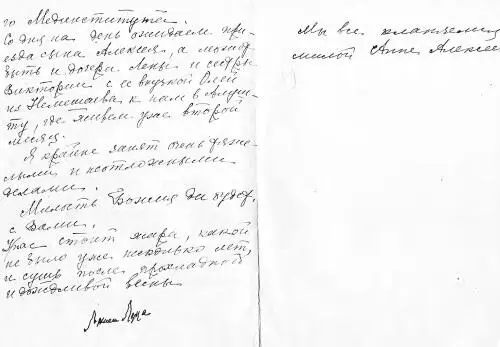 го Мединститута.
Со дня на день ожидаем при-
езда сына Алексея, а может
быть и дочери Лены и сестры
Виктории с ее внучкой Олей
из Немешаева к нам в Алуш-
ту, где живем уже второй
месяц.
Я крайне занят очень тяже-
лыми и неотложными
делами.
Милость Божия да будет
с Вами.
У нас стоит жара, какой
не было уже несколько лет,
и сушь после прохладной
и дождливой весны
Архиеп Лука
Мы все кланяемся
милой Анне Алексее